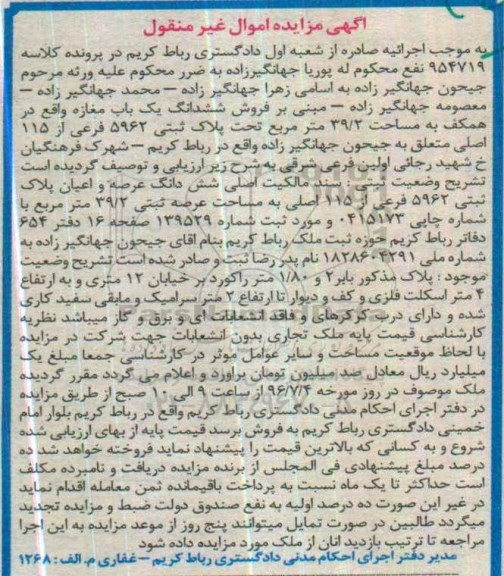 آگهی مزایده اموال غیر منقول
به موجب اجرائیه صادره از شعبه اول دادگستری رباط کریم در پرونده کلاسه
۹۵۴۷۱۹ نفع محکوم له پوریا جهانگیرزاده به ضرر محکوم علیه ورثه مرحوم
جیحون جهانگیر زاده به اسامی زهرا جهانگیر زاده – محمد جهانگیر زاده –
معصومه جهانگیر زاده – مبنی بر فروش ششدانگ یک باب مغازه واقع در
همکف به مساحت ۳۹/۲ متر مربع تحت پلاک ثبتی ۵۹۶۲ فرعی از ۱۱۵
اصلی متعلق به جیحون جهانگیر زاده واقع در رباط کریم – شهرک فرهنگیان
خ شهید رجائی اولین فرعی شرقی به شرح زیر ارزیابی و توصیف گردیده است
تشریح وضعیت ثبتی سند مالکیت اصلی شش دانگ عرصه و اعیان پلاک
ثبتی ۵۹۶۲ فرعی از ۱۱۵ اصلی به مساحت عرصه ثبتی ۳۹/۲ متر مربع با
شماره چاپی ۰۴۱۵۱۷۳ و مورد ثبت شماره ۱۳۹۵۲۹ صفحه ۱۶ دفتر ۶۵۴
دفاتر رباط کریم حوزه ثبت ملک رباط کریم بنام اقای جیحون جهانگیر زاده به
شماره ملی ۱۸۲۸۶۰۴۲۹۱ نام پدر رضا ثبت و صادر شده است تشریح وضعیت
موجود : پلاک مذکور بابر ۲ و ۱/۸۰ متر راکورد بر خیابان ۱۲ متری و به ارتفاع
۴ متر اسکلت فلزی و کف و دیوار تا ارتفاع ۲ متر سرامیک و مابقی سفید کاری
شده و دارای درب کرکره‌ای و فاقد انشعابات ای و برق و گاز میباشد نظریه
کارشناسی قیمت پایه ملک تجاری بدون انشعابات جهت شرکت در مزایده
با لحاظ موقعیت مساحت و سایر عوامل موثر در کارشناسی جمعا مبلغ یک
میلیارد ریال معادل صد میلیون تومان براورد و اعلام می گردد مقرر گردیده
ملک موصوف در روز مورخه ۹۶/۷/۴ از ساعت ۹ الی ۱۰ صبح از طریق مزایده
در دفتر اجرای احکام مدنی دادگستری رباط کریم واقع در رباط کریم بلوار امام
خمینی دادگستری رباط کریم به فروش برسد قیمت پایه از بهای ارزیابی شده
شروع و به کسانی که بالاترین قیمت را پیشنهاد نماید فروخته خواهد شد ده
درصد مبلغ پیشنهادی فی المجلس از برنده مزایده دریافت و نامبرده مکلف
است حداکثر تا یک ماه نسبت به پرداخت باقیمانده ثمن معامله اقدام نماید
در غیر این صورت ده درصد اولیه به نفع صندوق دولت ضبط و مزایده تجدید
میگردد طالبین در صورت تمایل میتوانند پنج روز از موعد مزایده به این اجرا
مراجعه تا ترتیب بازدید انان از ملک مورد مزایده داده شود
مدیر دفتر اجرای احکام مدنی دادگستری رباط کریم – غفاری م.الف:۱۲۶۸